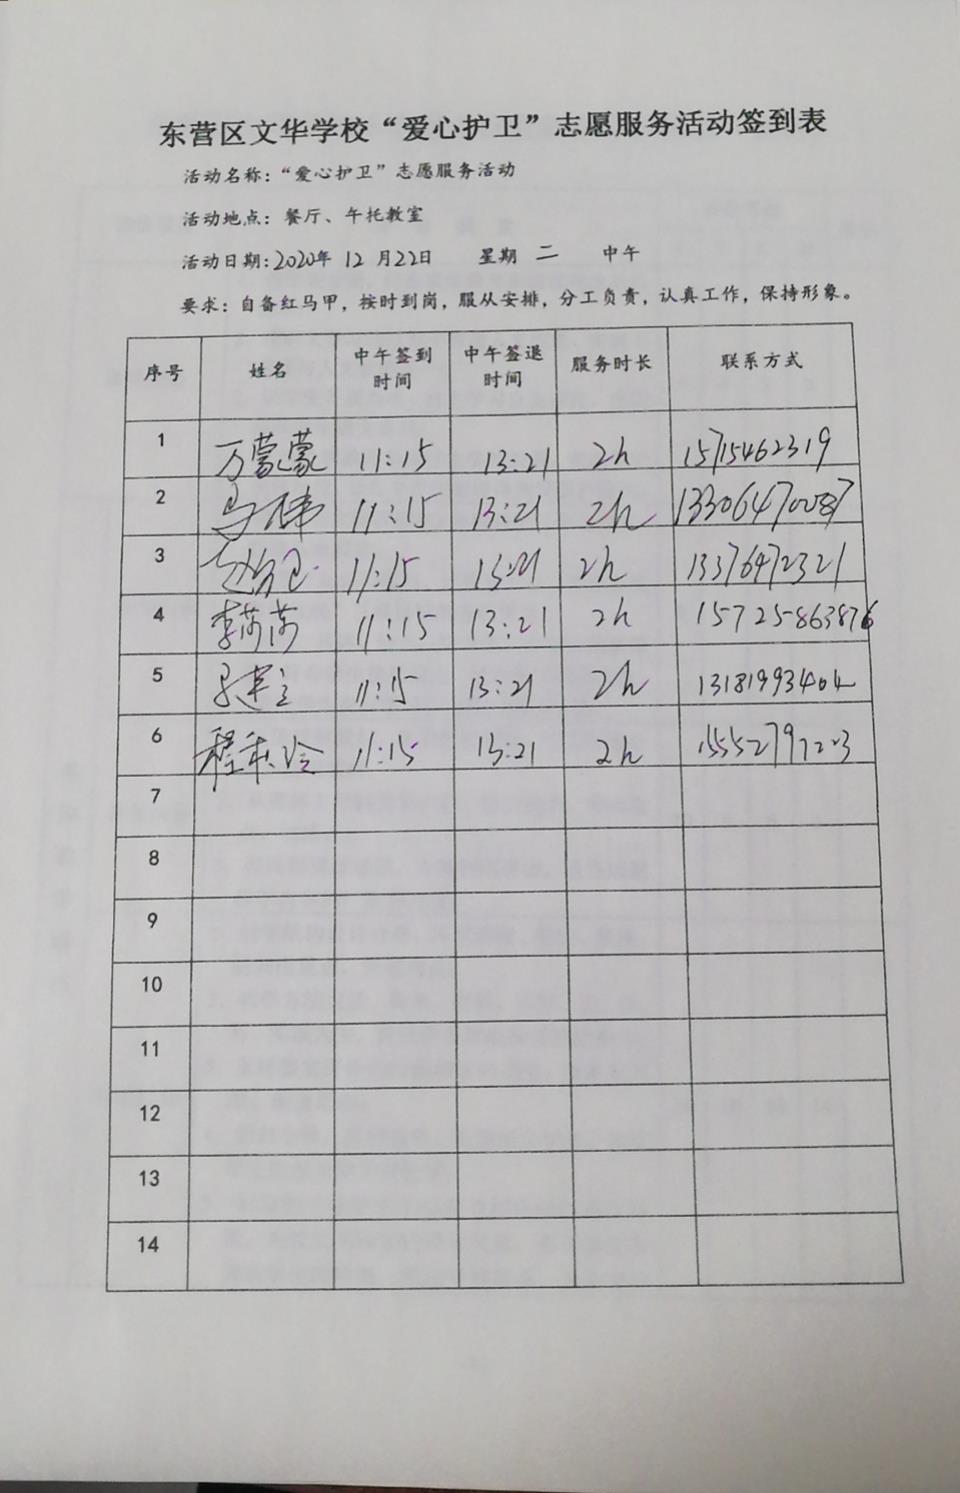 东营区文华学校“爱心护卫”志愿服务活动签到表
活动名称：“爱心护卫”志愿服务活动
活动地点：餐厅、午托教室
活动日期：2020年 12 月22日 星期 二 中午
要求：自备红马甲，按时到岗，服从安排，分工负责，认真工作，保持形象。
序号 姓名 中午签到时间 中午签退时间 服务时长 联系方式
1 万蒙蒙 11:15 13:21 2h 15715462319
2 马伟 11:15 13:21 2h 13306470087
3 11:15 13:21 2h 13376472321
4 李芮芮 11:15 13:21 2h 15725863876
5 11:15 13:21 2h 13181993404
6 程秋冷 11:15 13:21 2h 15552797223
7
8
9
10
11
12
13
14